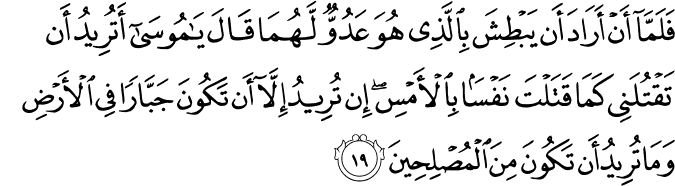 فَلَمَّآ أَنۡ أَرَادَ أَن يَبۡطِشَ بِٱلَّذِي هُوَ عَدُوّٞ لَّهُمَا قَالَ يَٰمُوسَىٰٓ أَتُرِيدُ أَن
تَقۡتُلَنِي كَمَا قَتَلۡتَ نَفۡسَۢا بِٱلۡأَمۡسِۖ إِن تُرِيدُ إِلَّآ أَن تَكُونَ جَبَّارٗا فِي ٱلۡأَرۡضِ
وَمَا تُرِيدُ أَن تَكُونَ مِنَ ٱلۡمُصۡلِحِينَ ١٩